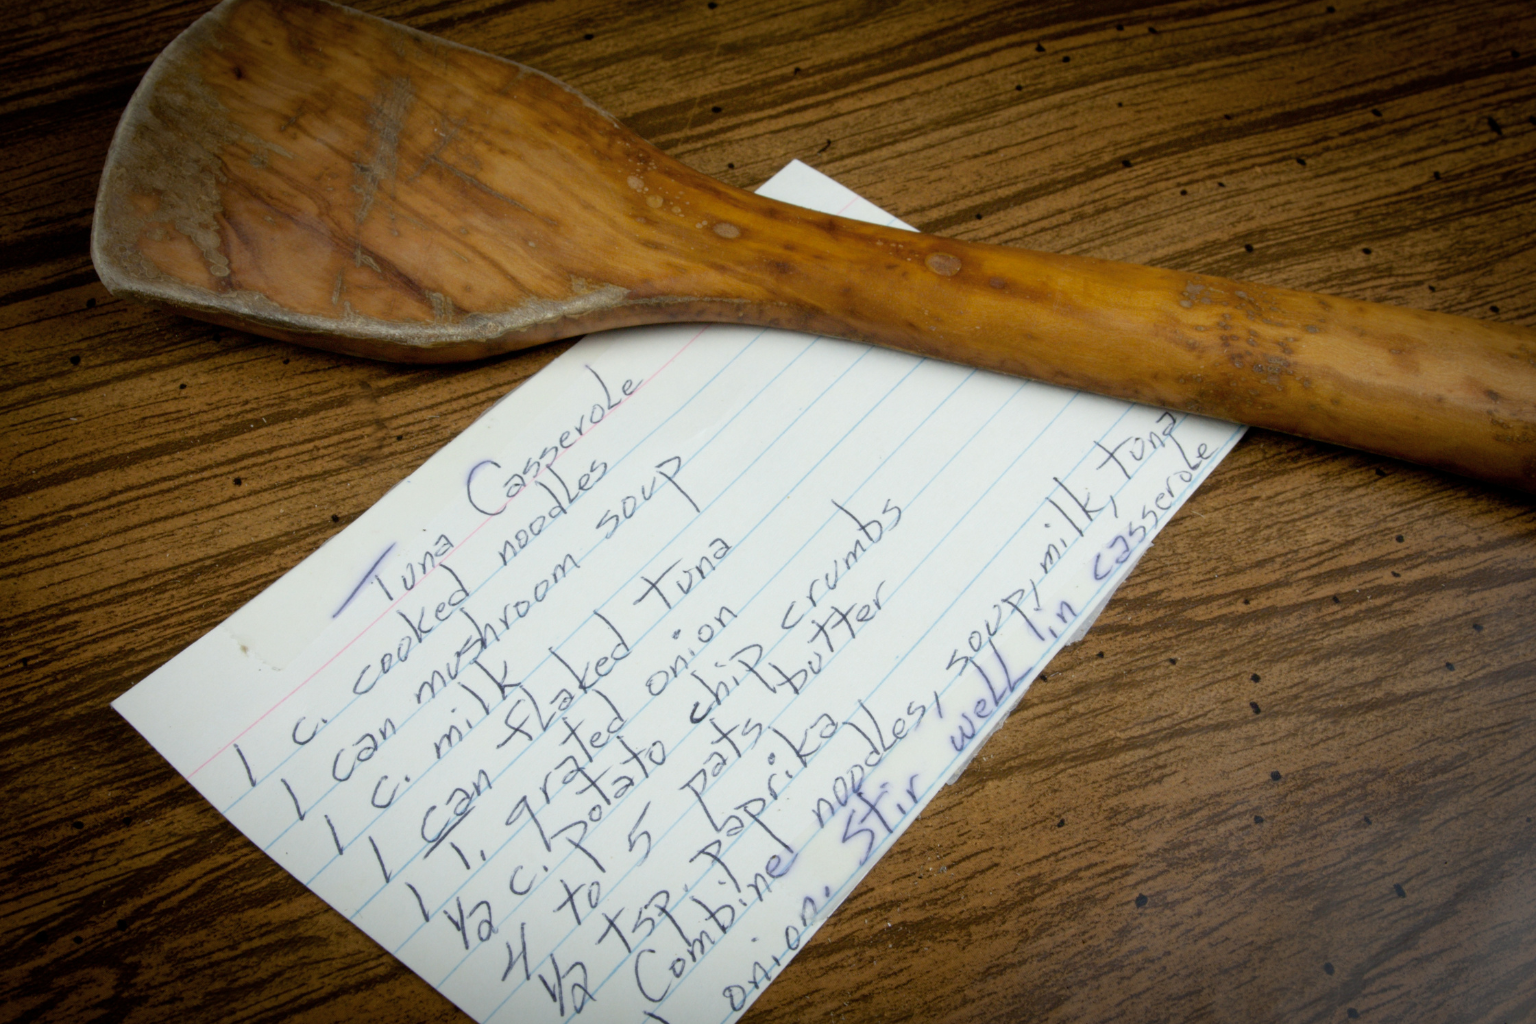 Tuna Casserole
1 c. cooked noodles
1 can mushroom soup
1 c. milk
1 can flaked tuna
1 T. grated onion
1/2 c. potato chip crumbs
4 to 5 pats butter
1/2 tsp. paprika
Combine noodles, soup, milk, tuna
onion. Stir well in casserole